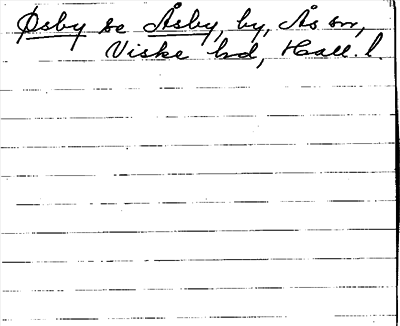 Øsby se Åsby, by, Ås sn,
Viske hd, Hall. l.